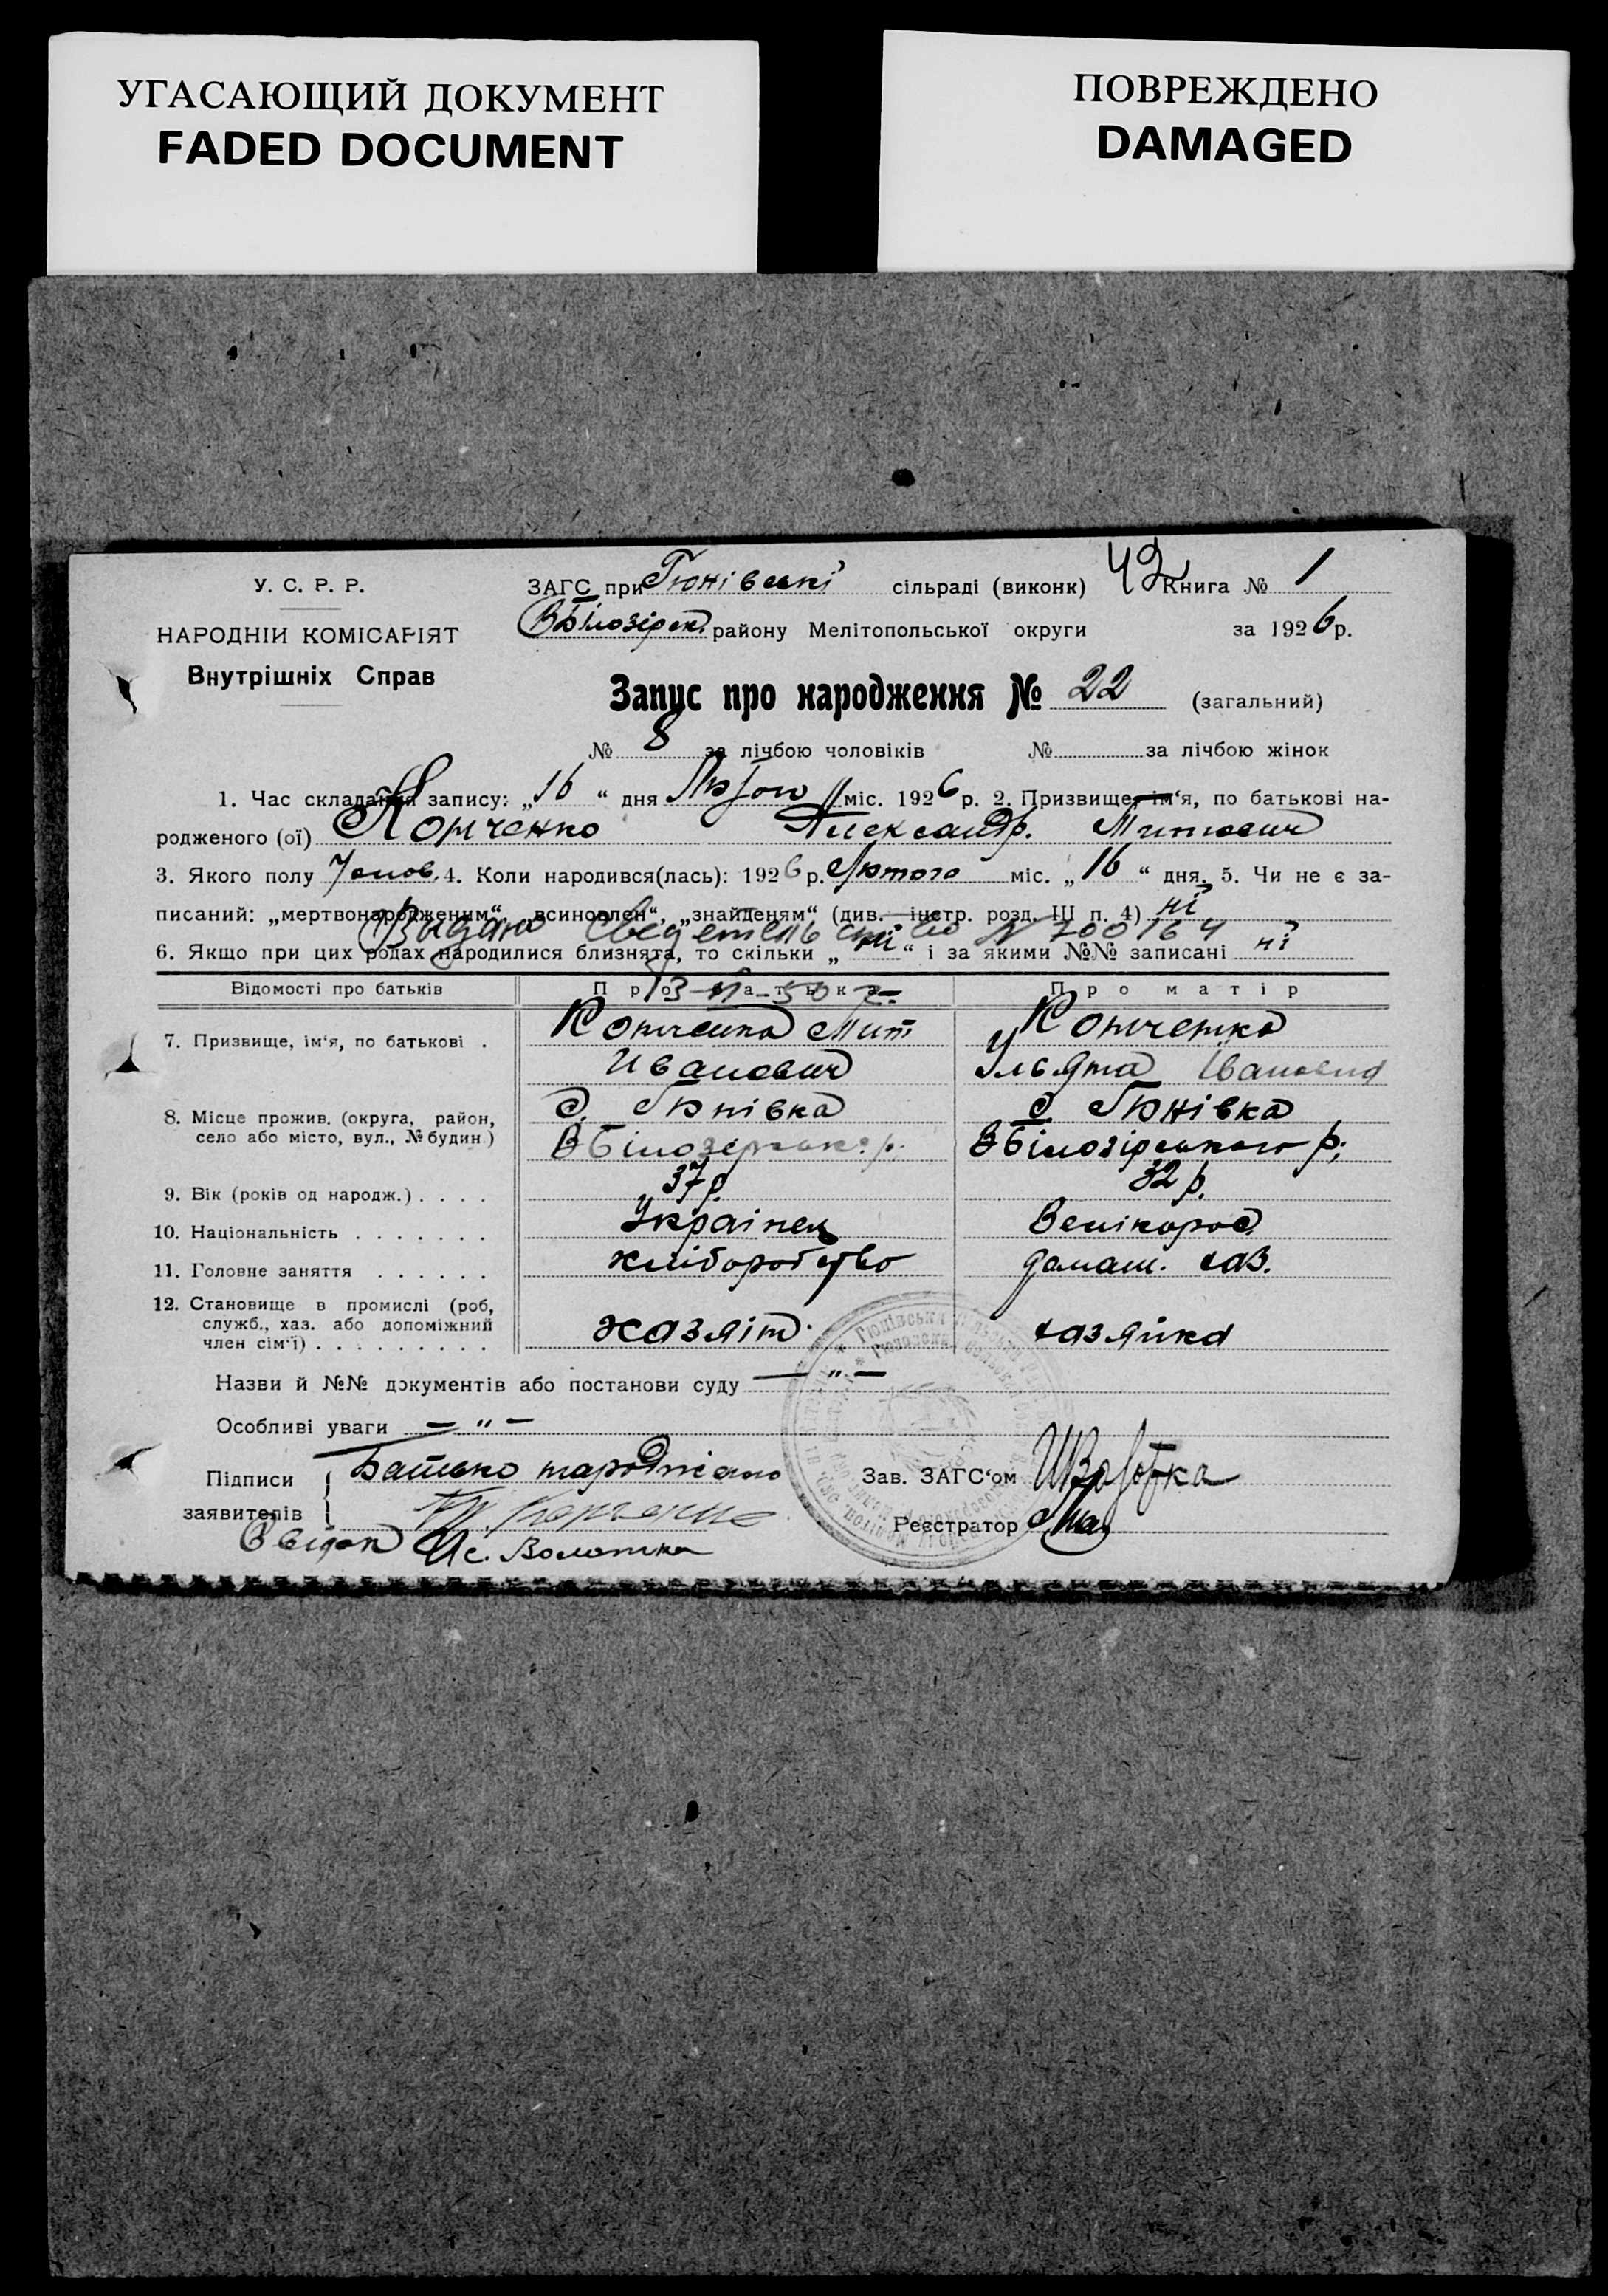 УГАСАЮЩИЙ ДОКУМЕНТ
FADED DOCUMENT
ПОВРЕЖДЕНО
DAMAGED
У. С. Р. Р.
НАРОДНІЙ КОМІСАРІЯТ
Внутрішніх Справ
ЗАГС при Гюнівській сільраді (виконк) 42 Книга № 1
ВБілозірск. району Мелітопольської округи за 1926 р.
Запис про народження № 22 (загальний)
№ 8 за лічбою чоловіків № за лічбою жінок
1. Час складання запису: „16“ дня Лютого міс. 1926 р. 2. Призвище, ім‘я, по батькові на-
родженого (ої) Александр. Митович
3. Якого полу Чолов. 4. Коли народився(лась): 1926 р. Лютого міс. „16“ дня. 5. Чи не є за-
писаний: „мертвонародженим“, „всиновлен“, „знайденям“ (див. інстр. розд. III п. 4) ні
Видано свидетельство № 700164
6. Якщо при цих родах народилися близнята, то скільки „ні“ і за якими №№ записані ні
Відомості про батьків
Про батька
Про матір
7. Призвище, ім‘я, по батькові .
Мит
Иванович
Ульяна
8. Місце прожив. (округа, район,
село або місто, вул., № будин.)
с. Гюнівка
ВБілозерськ. р.
с Гюнівка
ВБілозірського р.
9. Вік (років од народж.) . . . .
37 р.
32 р.
10. Національність . . . . . . .
Українец
Велікорос.
11. Головне заняття . . . . . .
хліборобство
домаш. хаз.
12. Становище в промислі (роб,
служб., хаз. або допоміжний
член сім‘ї) . . . . . . . . .
хазяін
хазяйка
Назви й №№ документів або постанови суду — „ —
Особливі уваги — „ —
Підписи
заявителів
Батько
Свідок
Зав. ЗАГС‘ом
Реєстратор